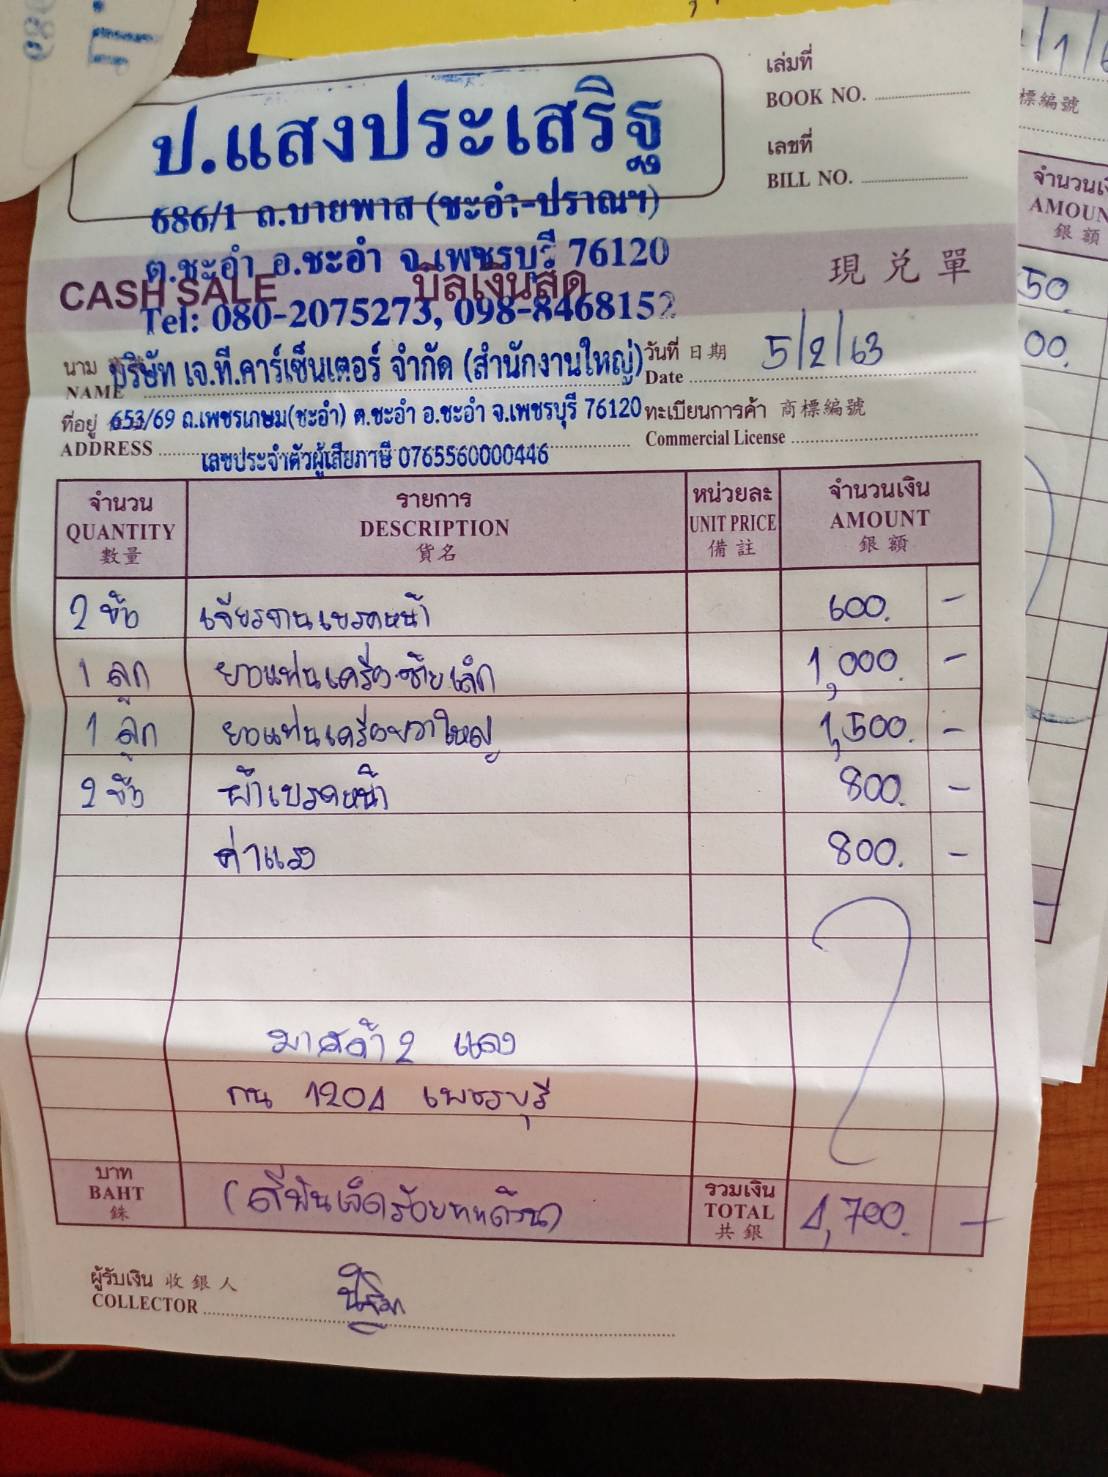 ป.แสงประเสริฐ
686/1 ถ.บายพาส (ชะอำ-ปราณฯ)
ต.ชะอำ อ.ชะอำ จ.เพชรบุรี 76120
Tel: 080-2075273, 098-8468152
เล่มที่
BOOK NO.
เลขที่
BILL NO.
CASH SALE บิลเงินสด 現兌單
นาม บริษัท เจ.ที.คาร์เซ็นเตอร์ จำกัด (สำนักงานใหญ่) วันที่ 日期 5/2/63
NAME Date
ที่อยู่ 653/69 ถ.เพชรเกษม(ชะอำ) ต.ชะอำ อ.ชะอำ จ.เพชรบุรี 76120 ทะเบียนการค้า 商標編號
ADDRESS เลขประจำตัวผู้เสียภาษี 0765560000446 Commercial License
จำนวน รายการ หน่วยละ จำนวนเงิน
QUANTITY DESCRIPTION UNIT PRICE AMOUNT
數量 貨名 備註 銀額
2 ข้าง เจียรจานเบรคหน้า 600. -
1 ลูก ยางแท่นเครื่องซ้ายเล็ก 1,000. -
1 ลูก ยางแท่นเครื่องขวาใหญ่ 1,500. -
2 ข้าง ผ้าเบรคหน้า 800. -
ค่าแรง 800. -
มาสด้า 2 แดง
กน 1204 เพชรบุรี
บาท (สี่พันเจ็ดร้อยบาทถ้วน) รวมเงิน 4,700. -
BAHT TOTAL
銖 共銀
ผู้รับเงิน 收銀人
COLLECTOR
標編號
จำนวนเงิ
AMOUN
銀額
50.
00.